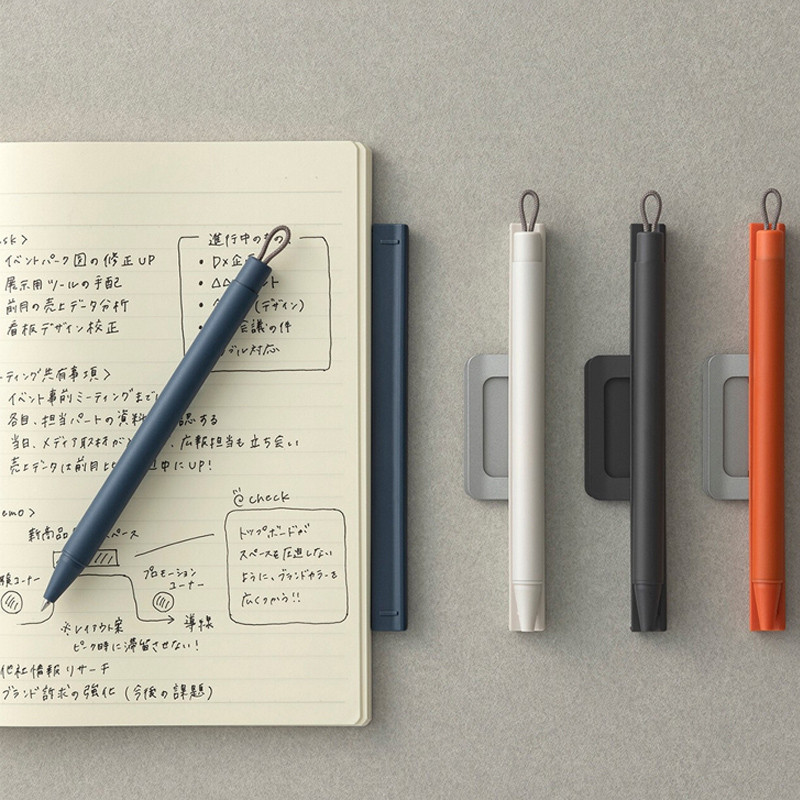 sk>
イベントパーク図の修正UP
展示用ツールの手配
前月の売上データ分析
看板デザイン校正
進行中の
• DX企
• △△ ント
• (デザイン)
• 会議の件
ブル対応
ーティング共有事項>
イベント事前ミーティングまで
各自、担当パートの資料 認する
当日、メディア取材が 、広報担当も立ち会い
売上データは前月 中にUP!
emo>
新商品 スペース
コーナー
プロモーション
コーナー
→ 導線
※レイアウト案
ピーク時に滞留させない!
@check
トップボードが
スペースを圧迫しない
ように、ブランドカラーを
広くつかう!!
他社情報リサーチ
ブランド訴求の強化(今後の課題)